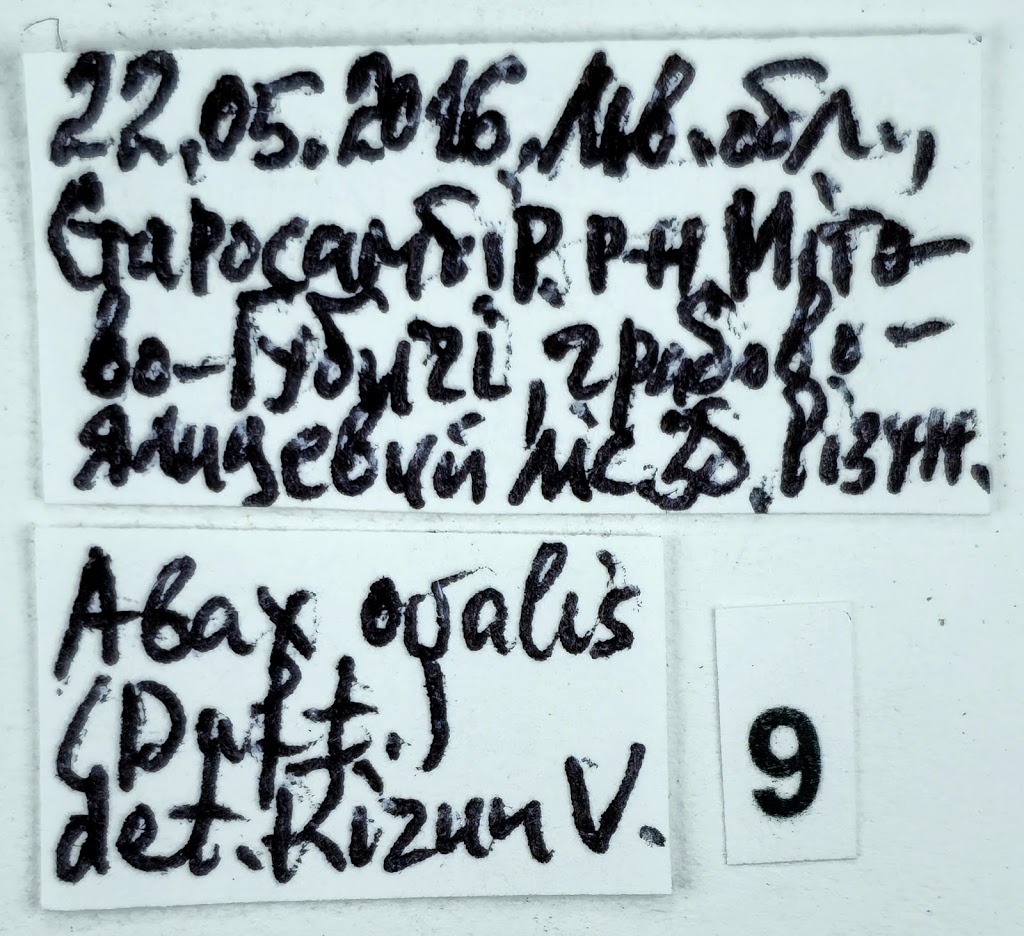 22.05.2016, Льв. обл.,
Старосамбір. р-н, Міто-
во-Губичі, грабово-
ялицевий ліс, зб. Різун.
Abax ovalis
(Duft.)
det. Rizun V.
9